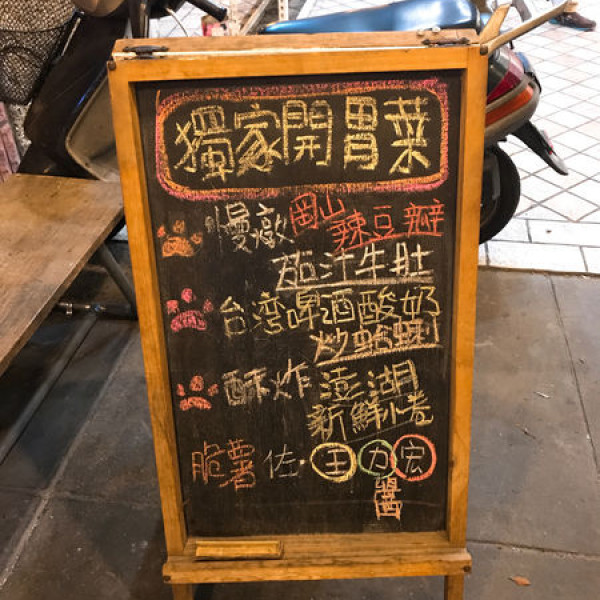 獨家開胃菜
慢燉岡山辣豆瓣
茄汁牛肚
台湾啤酒酸奶
炒蛤蜊
酥炸澎湖
新鮮小卷
脆薯佐王力宏
醬